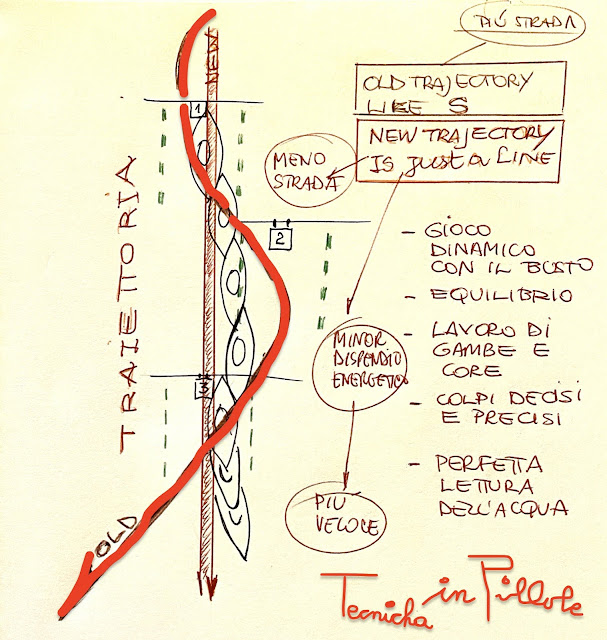 PIÚ STRADA
OLD TRAJECTORY
LIKE S
NEW TRAJECTORY
IS JUST A LINE
MENO
STRADA
NEW
1
2
3
TRAIETTORIA
OLD
MINOR
DISPENDIO
ENERGETICO
PIÚ
VELOCE
- GIOCO
DINAMICO
CON IL BUSTO
- EQUILIBRIO
- LAVORO DI
GAMBE E
CORE
- COLPI DECISI
E PRECISI
- PERFETTA
LETTURA
DELL'ACQUA
Tecnicha in Pillole